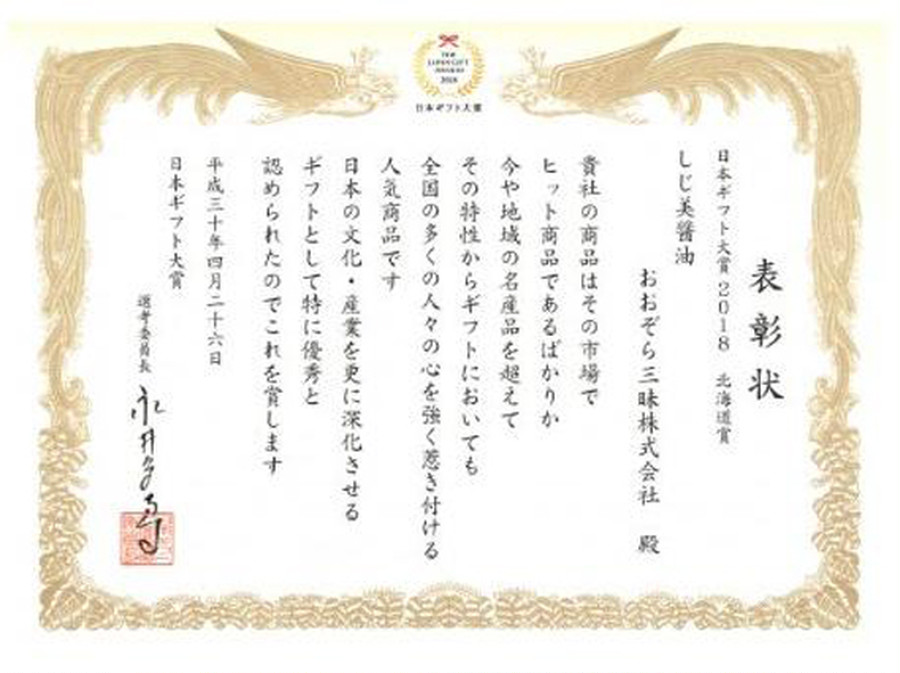 THE
JAPAN GIFT
AWARDS
2018
日本ギフト大賞
表彰状
日本ギフト大賞2018 北海道賞
しじ美醤油
おおぞら三昧株式会社 殿
貴社の商品はその市場で
ヒット商品であるばかりか
今や地域の名産品を超えて
その特性からギフトにおいても
全国の多くの人々の心を強く惹き付ける
人気商品です
日本の文化・産業を更に深化させる
ギフトとして特に優秀と
認められたのでこれを賞します
平成三十年四月二十六日
日本ギフト大賞
選考委員長